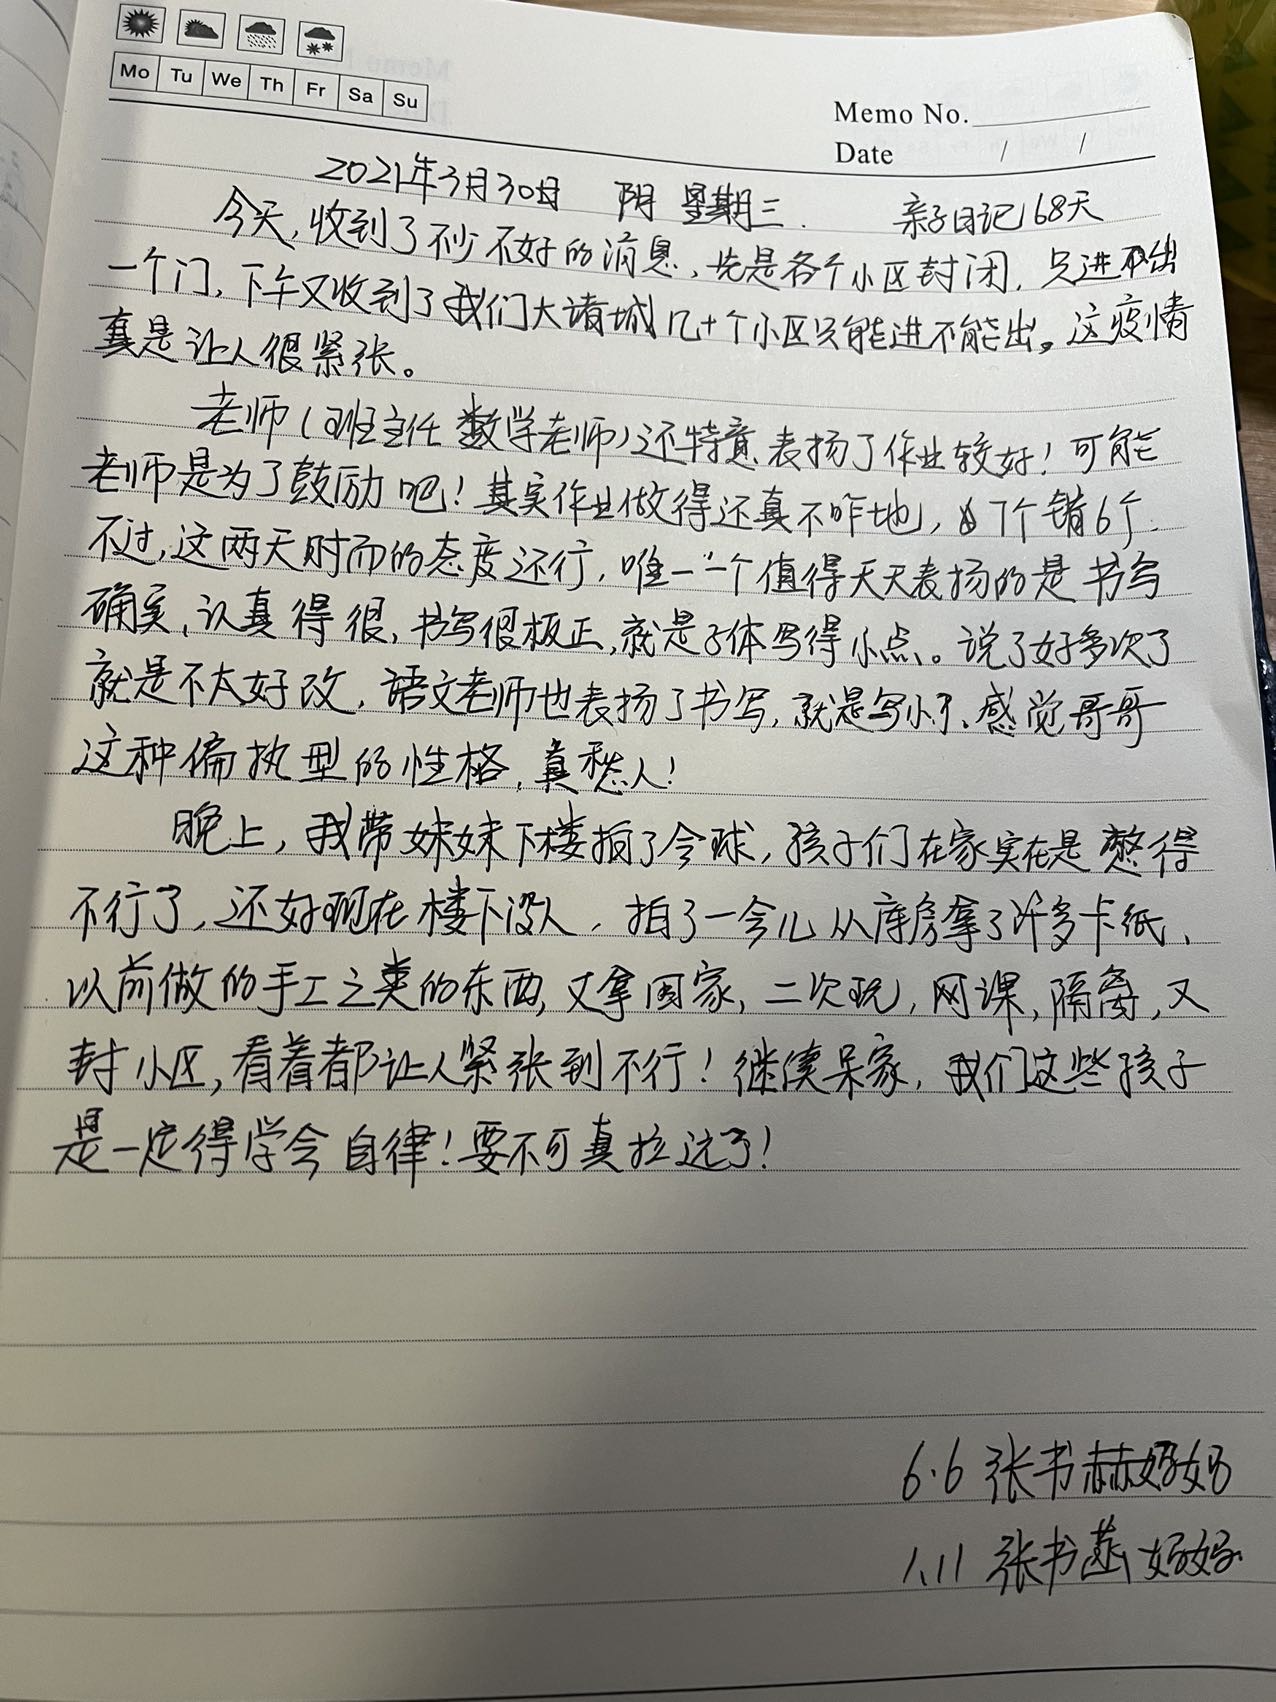 Mo Tu We Th Fr Sa Su
Memo No.
Date / /
2021年3月30日 阴 星期三. 亲子日记168天
今天,收到了不少不好的消息,先是各个小区封闭,只进不出
一个门,下午又收到了我们大诸城几十个小区只能进不能出。这疫情
真是让人很紧张。
老师(班主任 数学老师)还特意表扬了作业较好!可能
老师是为了鼓励吧!其实作业做得还真不咋地,7个错6个.
不过,这两天时而的态度还行,唯一一个值得天天表扬的是书写
确实,认真得很,书写很板正,就是字体写得小点。说了好多次了
就是不太好改,语文老师也表扬了书写,就是写小了、感觉哥哥
这种偏执型的性格,真愁人!
晚上,我带妹妹下楼拍了会球,孩子们在家实在是憋得
不行了,还好现在楼下没人,拍了一会儿从库房拿了许多卡纸、
以前做的手工之类的东西,又拿回家,二次玩,网课,隔离,又
封小区,看着都让人紧张到不行!继续呆家,我们这些孩子
是一定得学会自律!要不可真拉远了!
6.6 张书赫妈妈
1.11 张书菡妈妈